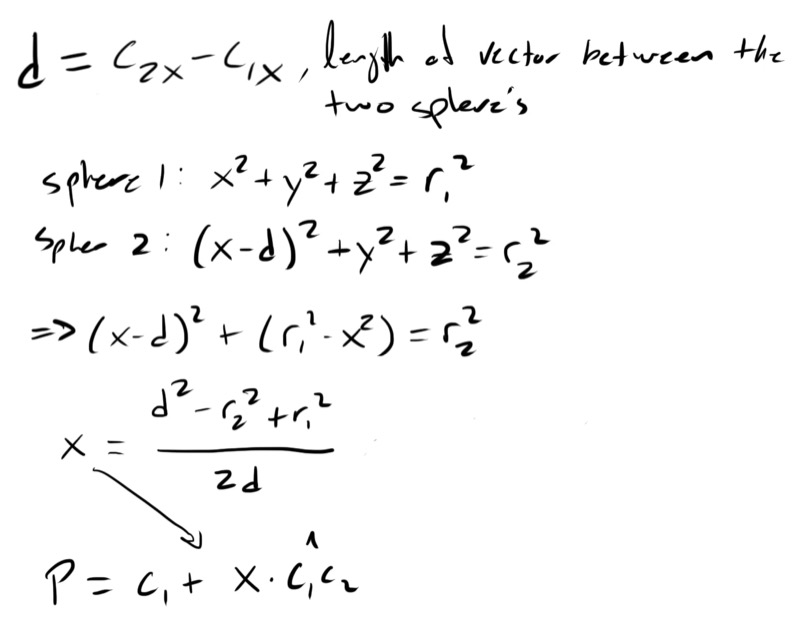 d = C₂ₓ - C₁ₓ, length of vector between the
two sphere's
sphere 1: x² + y² + z² = r₁²
Spher 2: (x-d)² + y² + z² = r₂²
=> (x-d)² + (r₁² - x²) = r₂²
x = (d² - r₂² + r₁²) / 2d
P = C₁ + x · Ĉ₁C₂